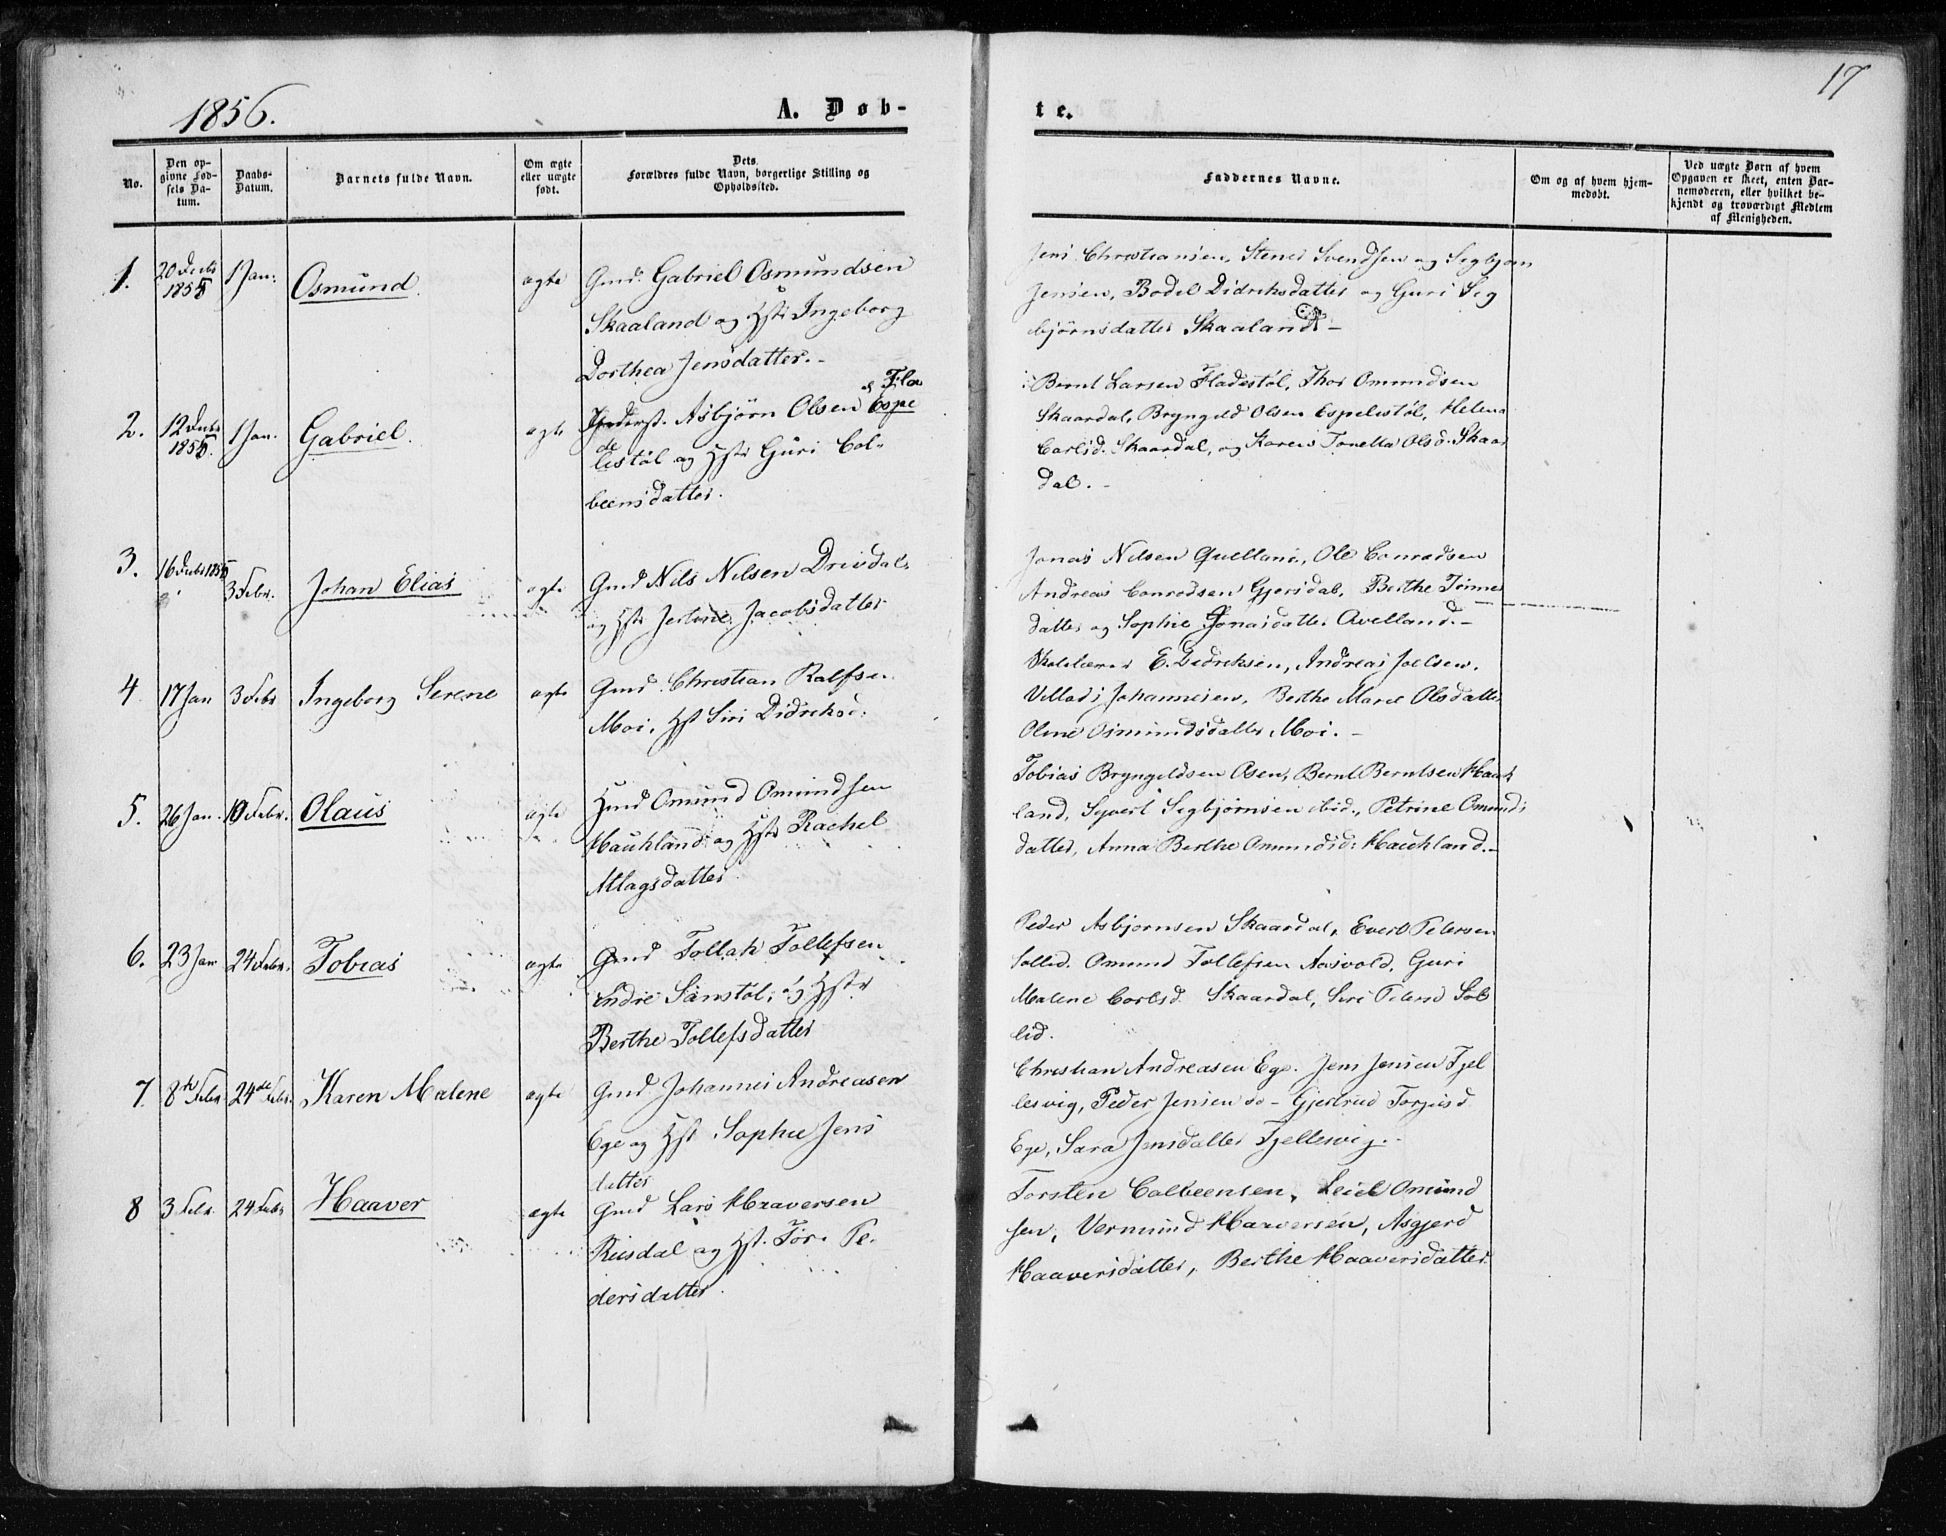 17
1856.
A. Døb-
te.
No.
Den op-
givne Fød-
sels Da-
tum.
Daabs-
Datum.
Barnets fulde Navn.
Om ægte
eller uægte
født.
Dets
Forældres fulde Navn, borgerlige Stilling og
Opholdssted.
Faddernes Navne.
Om og af hvem hjem-
medøbt.
Ved uægte Børn af hvem
Opgaven er skeet, enten Bar-
nemoderen, eller hvilket be-
kjendt og troværdigt Medlem
af Menigheden.
1.
20 Decbr
1855
1 Jan:
Osmund
ægte
Gmd. Gabriel Osmundsen
Skaaland og Hstr Ingeborg
Dorthea Jensdatter.-
Jens Christiansen, Stener Svendsen og Segbjørn
Jensen, Bodel Didriksdatter og Guri Seg
bjørnsdatter Skaaland-
2.
12 Decbr
1855.
1 Jan.
Gabriel.
ægte
Inderst. Asbjørn Olsen Espe
Fla
de
lestøl og Hstr Guri Col-
beensdatter.
Bernt Larsen Fladestøl, Thor Omundsen
Skaardal, Bryngeld Olsen Espelestøl, Helena
Carlsd. Skaardal, og Karen Tonella Olsd. Skaar
dal.-
3.
16 Decbr 1855
3 Febr.
Johan Elias
ægte
Gmd Nils Nilsen Drivdal
og Hstr Jertine Jacobsdatter
Jonas Nilsen Quelland, Ole Conradsen
Andreas Conradsen Gjersdal, Berthe Tønnes
datter og Sophie Jonasdatter Qvelland.-
4
17 Jan
3 Febr
Ingeborg Serene
ægte
Gmd. Christian Ralfsen
Moi, Hst Siri Didriksd:
Skolelærer E. Didriksen, Andreas Joelsen,
Villads Johannesen, Berthe Marie Olsdatter
Oline Osmundsdatter Moi.-
5.
26 Jan.
10 Febr.
Olaus
ægte
Hmd Omund Omundsen
Hauhland og Hstr Rachel
Atlagsdatter
Tobias Bryngeldsen Osen, Bernt Berntsen Hauk
land, Syvert Segbjørnsen ibid., Petrine Omunds
datter, Anna Berthe Omundsd: Hauhland.-
6.
23 Jan
24 Febr.
Tobias
ægte
Gmd Tollak Tollefsen
Indre Sanstøl, og Hstr
Berthe Tollefsdatter
Peder Asbjørnsen Skaardal, Evert Petersen
Sollid. Omund Tollefsen Aasvold, Guri
Malene Carlsd. Skaardal, Siri Petersd Sol
lid.
7.
8de Febr
24de Febr.
Karen Malene
ægte
Gmd. Johannes Andreasen
Ege og Hst. Sophie Jens
datter
Christian Andreasen Ege. Jens Jensen Fjel
lesvig, Peder Jensen do- Gjertrud Torjusd
Ege, Sara Jensdatter Fjellesvig.-
8
3 Febr.
24 Febr
Haaver
ægte
Gmd Lars Haaversen
Rusdal og Hst. Tore Pe-
dersdatter.
Torsten Colbeensen, Leiel Omund
sen, Vermund Haaversen, Asgjerd
Haaversdatter, Berthe Haaversdatter.